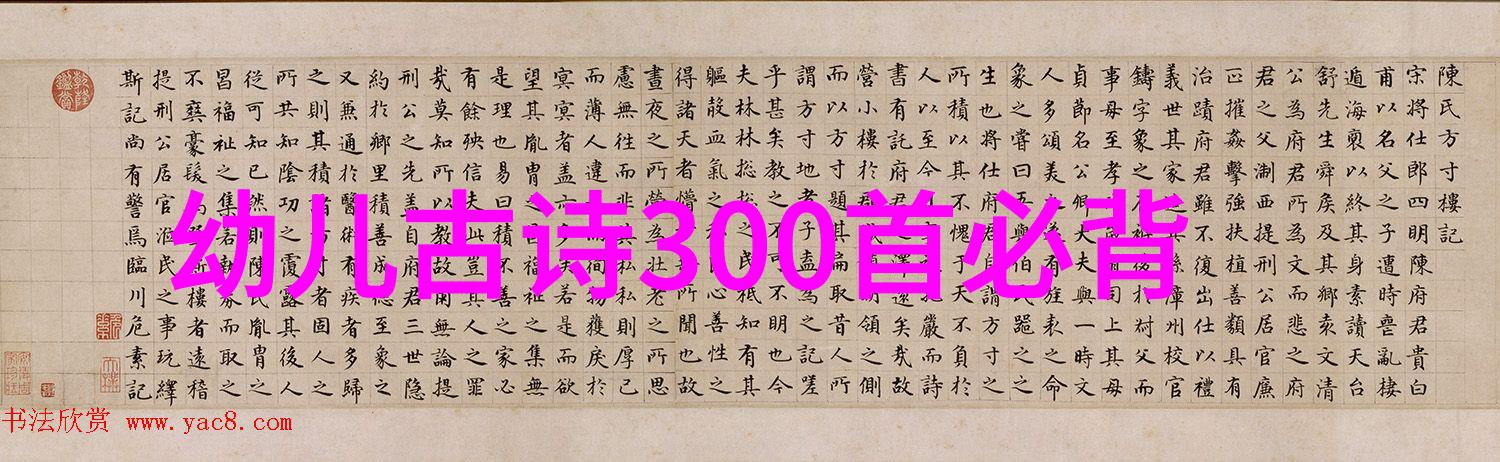 陳氏方寸樓記
宋將仕郎四明陳府君貴白
甫以名父之子遭時喪亂棲
遁海裏以終其身素讀天台
舒先生舜矦及其鄉袁文清
公為府君所為文而悲之府
君之父淛西提刑公居官廉
正摧姦擊強扶植善類具有
治蹟府君雖不復出仕以禮
義世其家孫漳州校官
鑄字象之後於父而
事母至孝司上其母
貞節名公卿大夫與一時文
人多頌美之有旌表之命
象之嘗曰吾與伯氏之
生也將仕府君自謂方寸之
所積以其不愧于天不負於
人以至今嚴而詩
書有託府君之澤遠矣哉故
營小樓於領之側
而以方寸題其扁取昔人所
謂方寸地者子盍為之記嗟
乎甚矣教之不可不明也今
夫林林揔揔之民秪知有其
軀殼血氣之心善性之
得諸天者懵所聞也故
晝夜之所營為壯老之所思
慮無徃而非其私私則厚己
而薄人違而徇物獲戾於
冥冥者盖亦多矣若是而欲
望其胤胄之福祉之集無
是理也易曰積不善之家必
有餘殃信夫此豈其人之罪
哉莫知所以教故爾無論提
刑公之先盖自府君三世隱
約於鄉里積善成德至象之
又兼通於醫術有疾者多歸
之則其積者方寸者固人之
所共知陰功之霞露其後人
從可知已然則陳氏胤胄之
昌福祉之集若執券而取之
不爽豪髮登斯樓者遠稽
提刑公居官涖民之事玩繹
斯記尚有警焉臨川危素記
幼儿古诗300首必背
书法欣赏 www.yac8.com